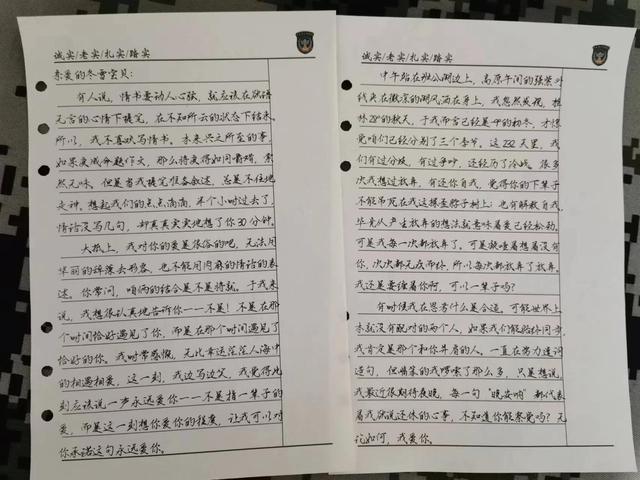 诚实/老实/扎实/踏实
亲爱的冬雪宝贝:
有人说,情书要动人心弦,就应该在欲语
无言的心情下提笔,在不知所云的状态下结束。
所以,我不喜欢写情书。本来兴之所至的事,
如果变成命题作文,那么将变得如同嚼蜡,索
然无味。但是当我提笔准备叙述,总是不住地
走神。想起我们的点点滴滴,半个小时过去了,
情话没写几句,却真真实实地想了你30分钟。
大抵上,我对你的爱是很俗的吧,无法用
华丽的辞藻去形容,也不能用肉麻的情话的表
述。你常问,咱俩的结合是不是将就。于我来
说,我想很认真地告诉你——不是!不是在那
个时间恰好遇见了你,而是在那个时间遇见了
恰好的你。我时常感慨,无比幸运茫茫人海中
的相遇相爱,这一刻,我边写边笑,我觉得此
刻应该说一声永远爱你——不是指一辈子的
爱,而是这一刻想你爱你的程度,让我可以对
你承诺这句永远爱你。
诚实/老实/扎实/踏实
中午站在班公湖边上,高原午间的强紫外
线夹在微凉的湖风洒在身上,我忽然发现,桂
林28°的秋天,于我而言已经是-4°的初冬,才惊
觉咱们已经分别了三个季节。这232天里,我
们有过分歧,有过争吵,还经历了冷战。很多
次我想过放弃,有还你自我,觉得你的下辈子
不能吊死在我这棵歪脖子树上,也有解救自我,
毕竟从产生放弃的想法就意味着爱已经松动。
可是我每一次都放弃了,可是凝噎着想着没有
你,次次都无疾而终,所以每次都放弃了放弃。
我还是要缠着你啊,可以一辈子吗?
有时候我在思考什么是合适,可能世界上
本就没有配对的两个人,如果我们能始终同步,
我肯定是那个和你并肩的人。一直在努力遣词
造句,但嘴笨的我啰嗦了那么多,只是想说,
我最近很期待夜晚,每一句"晚安呐"都代表
着我欲说还休的心事,不知道你能察觉吗?无
论如何,我爱你。